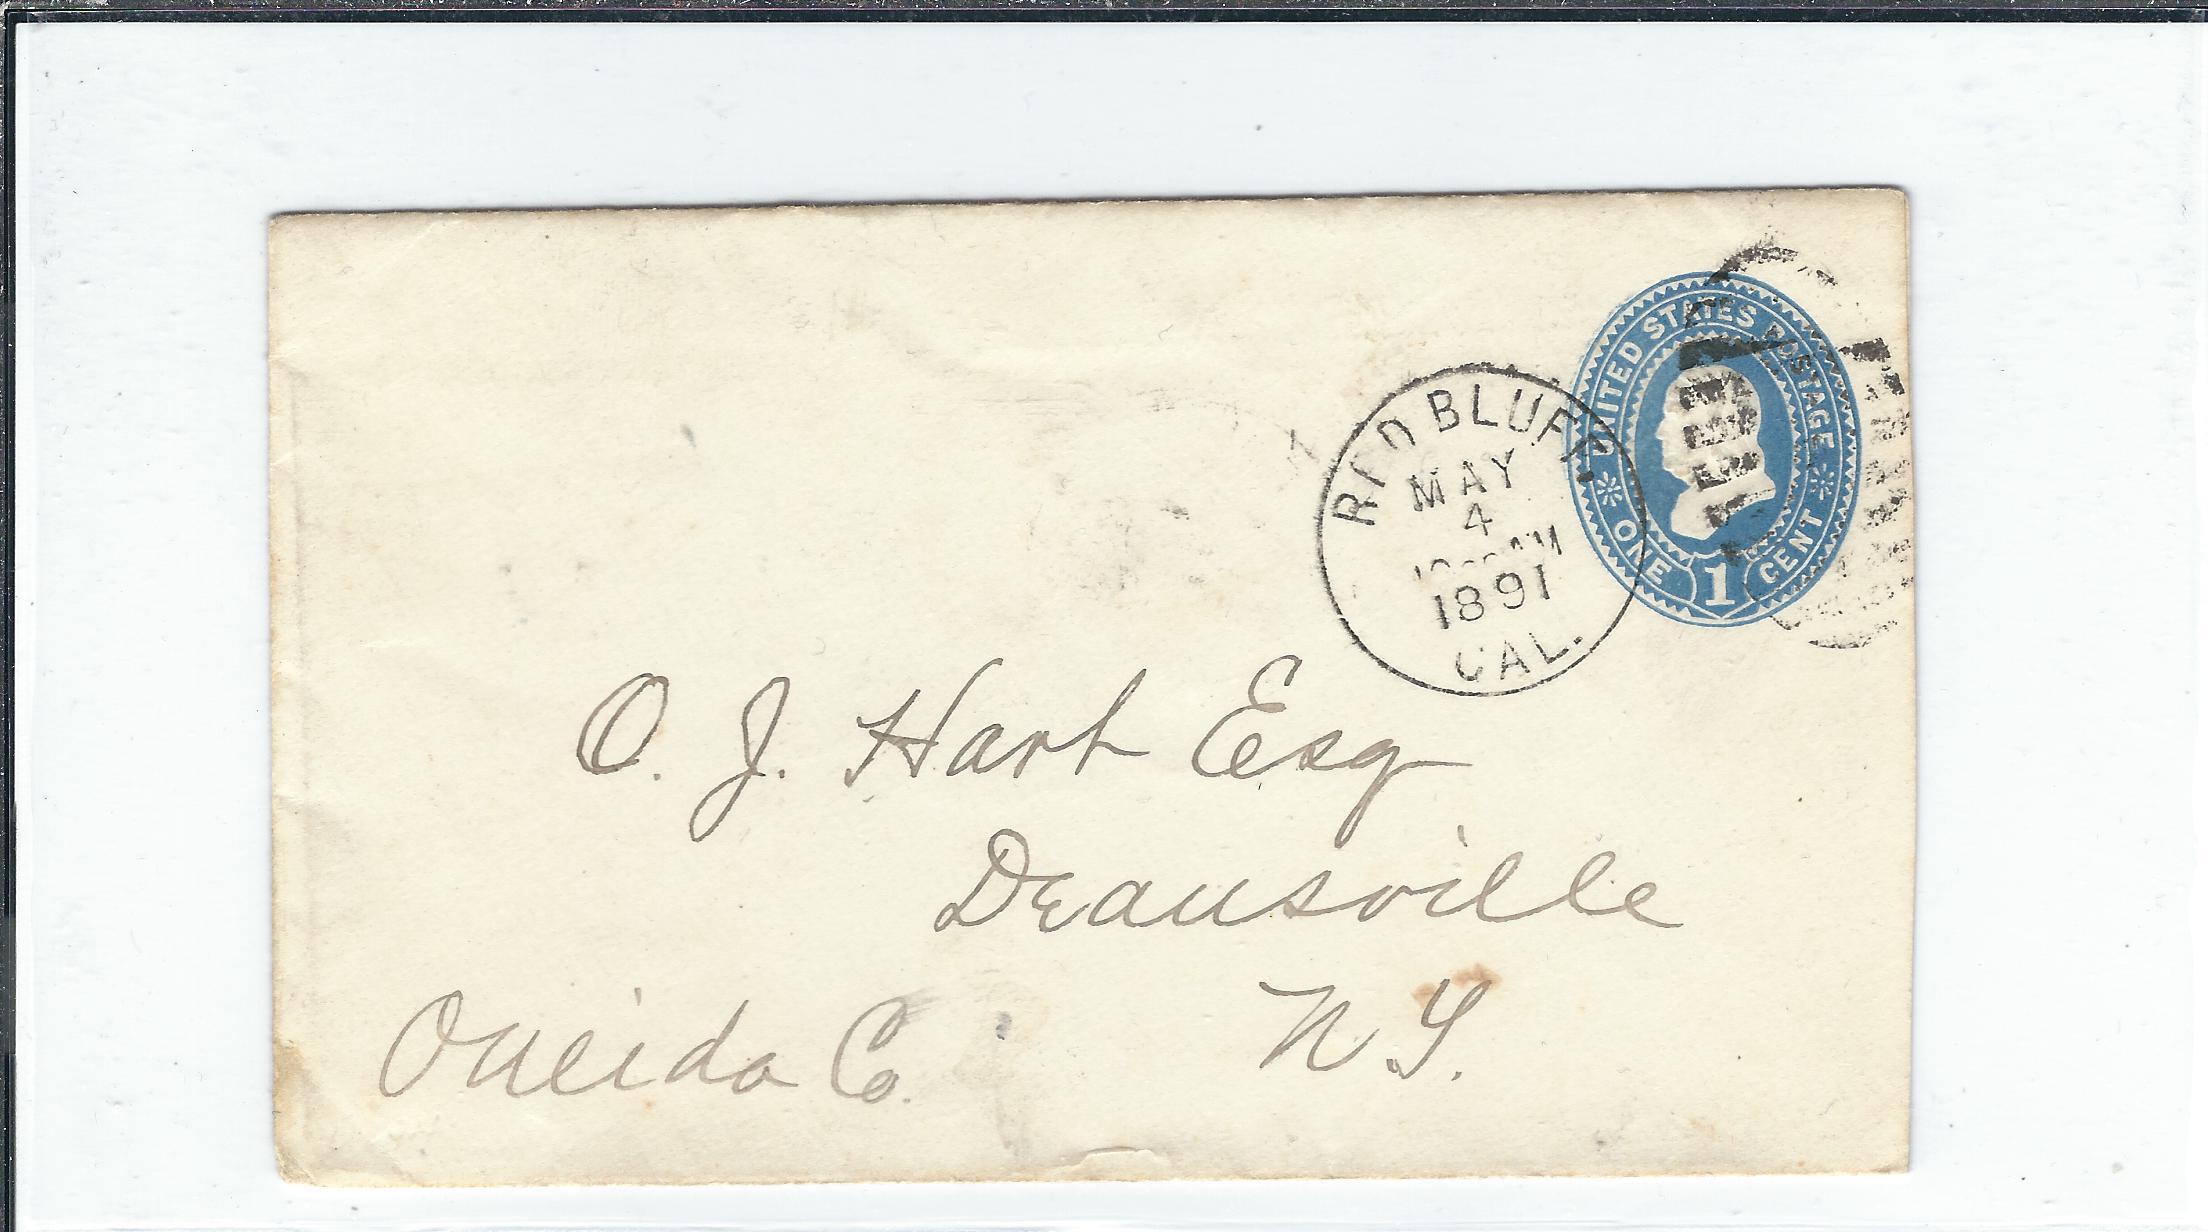 UNITED STATES POSTAGE
ONE 1 CENT
RED BLUFF,
MAY
4
AM
1891
CAL.
O. J. Hart Esq
Deansville
Oneida Co. N.Y.